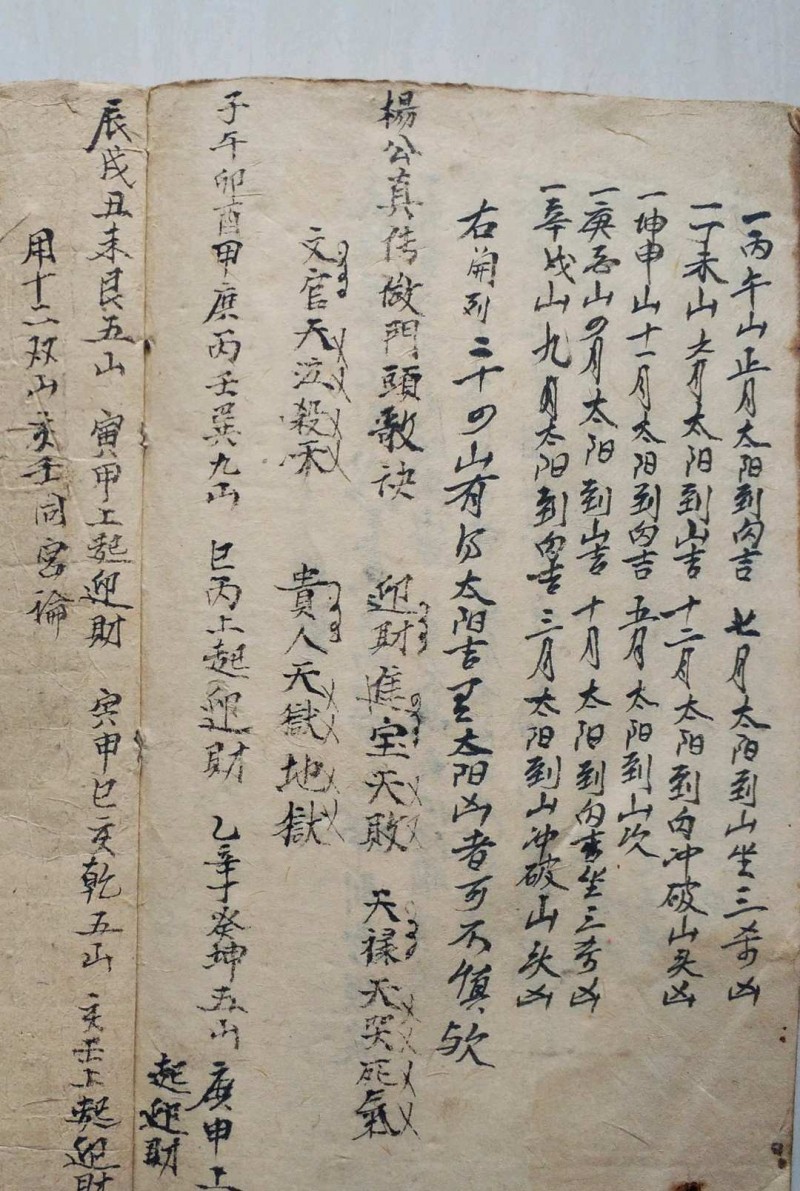 一丙午山正月太阳到向吉　七月太阳到山坐三煞凶
一丁未山六月太阳到山吉　十二月太阳到向冲破山头凶
一坤申山十一月太阳到向吉　五月太阳到山次
一庚酉山四月太阳到山吉　十月太阳到向吉坐三煞凶
一辛戌山九月太阳到向吉　三月太阳到山冲破山头凶
右開列二十四山有得太阳吉里太阳凶者可不慎欤
楊公真传做門頭歌诀　迎財進宝天敗　天禄天哭死氣
文官天泣殺　貴人天獄地獄
子午卯酉甲庚丙壬巽九山　巳丙上起迎財　乙辛丁癸坤五山　庚申上
起迎財
辰戌丑未艮五山　寅甲上起迎財　寅申巳亥乾五山　亥壬上起迎財
用十二双山亥壬同宮論